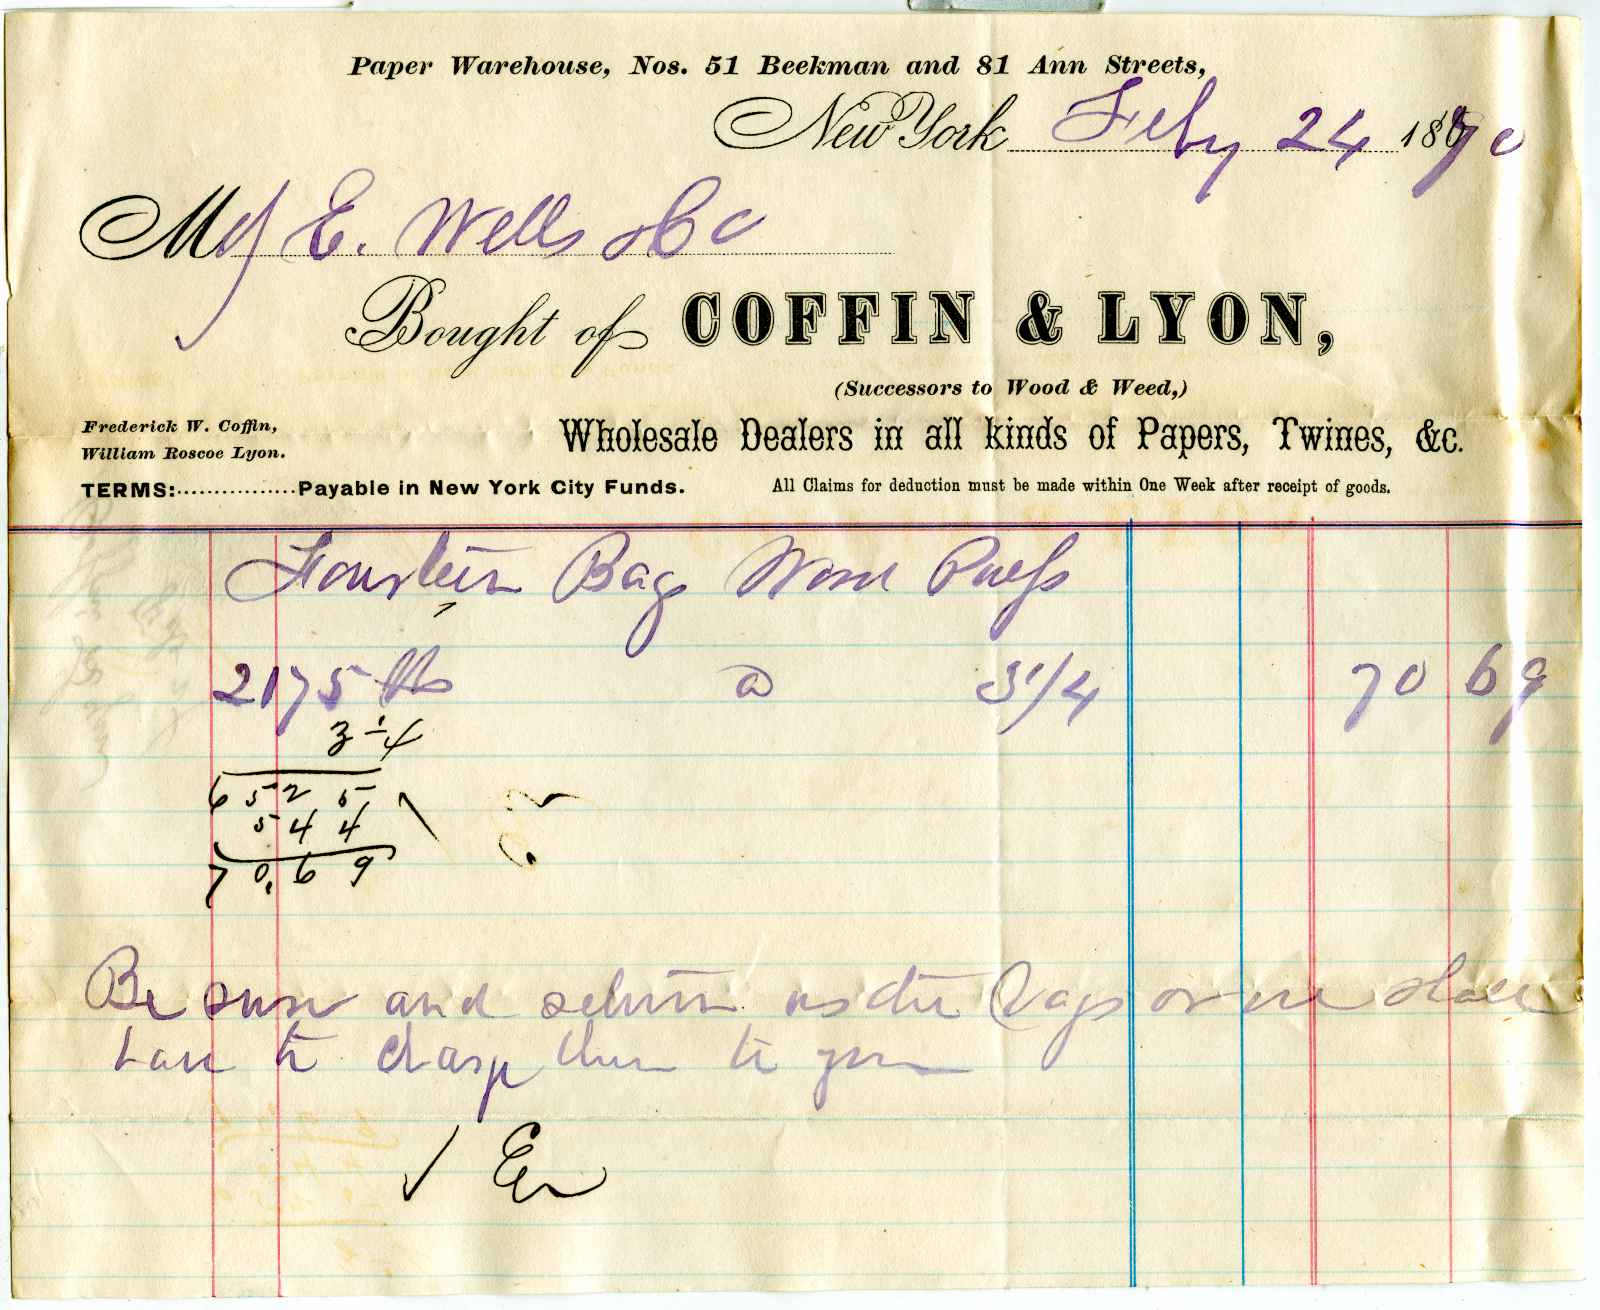 Paper Warehouse, Nos. 51 Beekman and 81 Ann Streets,
New York Feby 24 1870
Mess E. Wells & Co
Bought of COFFIN & LYON,
(Successors to Wood & Weed,)
Frederick W. Coffin,
William Roscoe Lyon.
Wholesale Dealers in all kinds of Papers, Twines, &c.
TERMS:................Payable in New York City Funds.
All Claims for deduction must be made within One Week after receipt of goods.
Fourteen Bags Wood
2175 lbs @ 3 1/4 70 69
3 1/4
6 5 2 5
5 4 4
7 0. 6 9
Be sure and return us the Bags or we shall
have to charge them to you